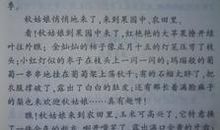 季。
秋姑娘悄悄地来了，来到果园中、农田里。
看！秋姑娘来到果园中，红艳艳的大苹果撩开绿
叶往外瞧；金灿灿的柿子像正月十五的灯笼压弯了枝
头；小红灯似的枣子在枝头上一闪一闪的；玛瑙般的葡
萄一串串地挂在葡萄架上荡秋千；害的石榴太胖了，把
衣服撑破了，露出了白白的肚皮；还有长着满脸麻子
的梨也来欢欣秋姑娘……真有趣呀！
瞧！秋姑娘来到农田里，玉米可高兴了，它特意